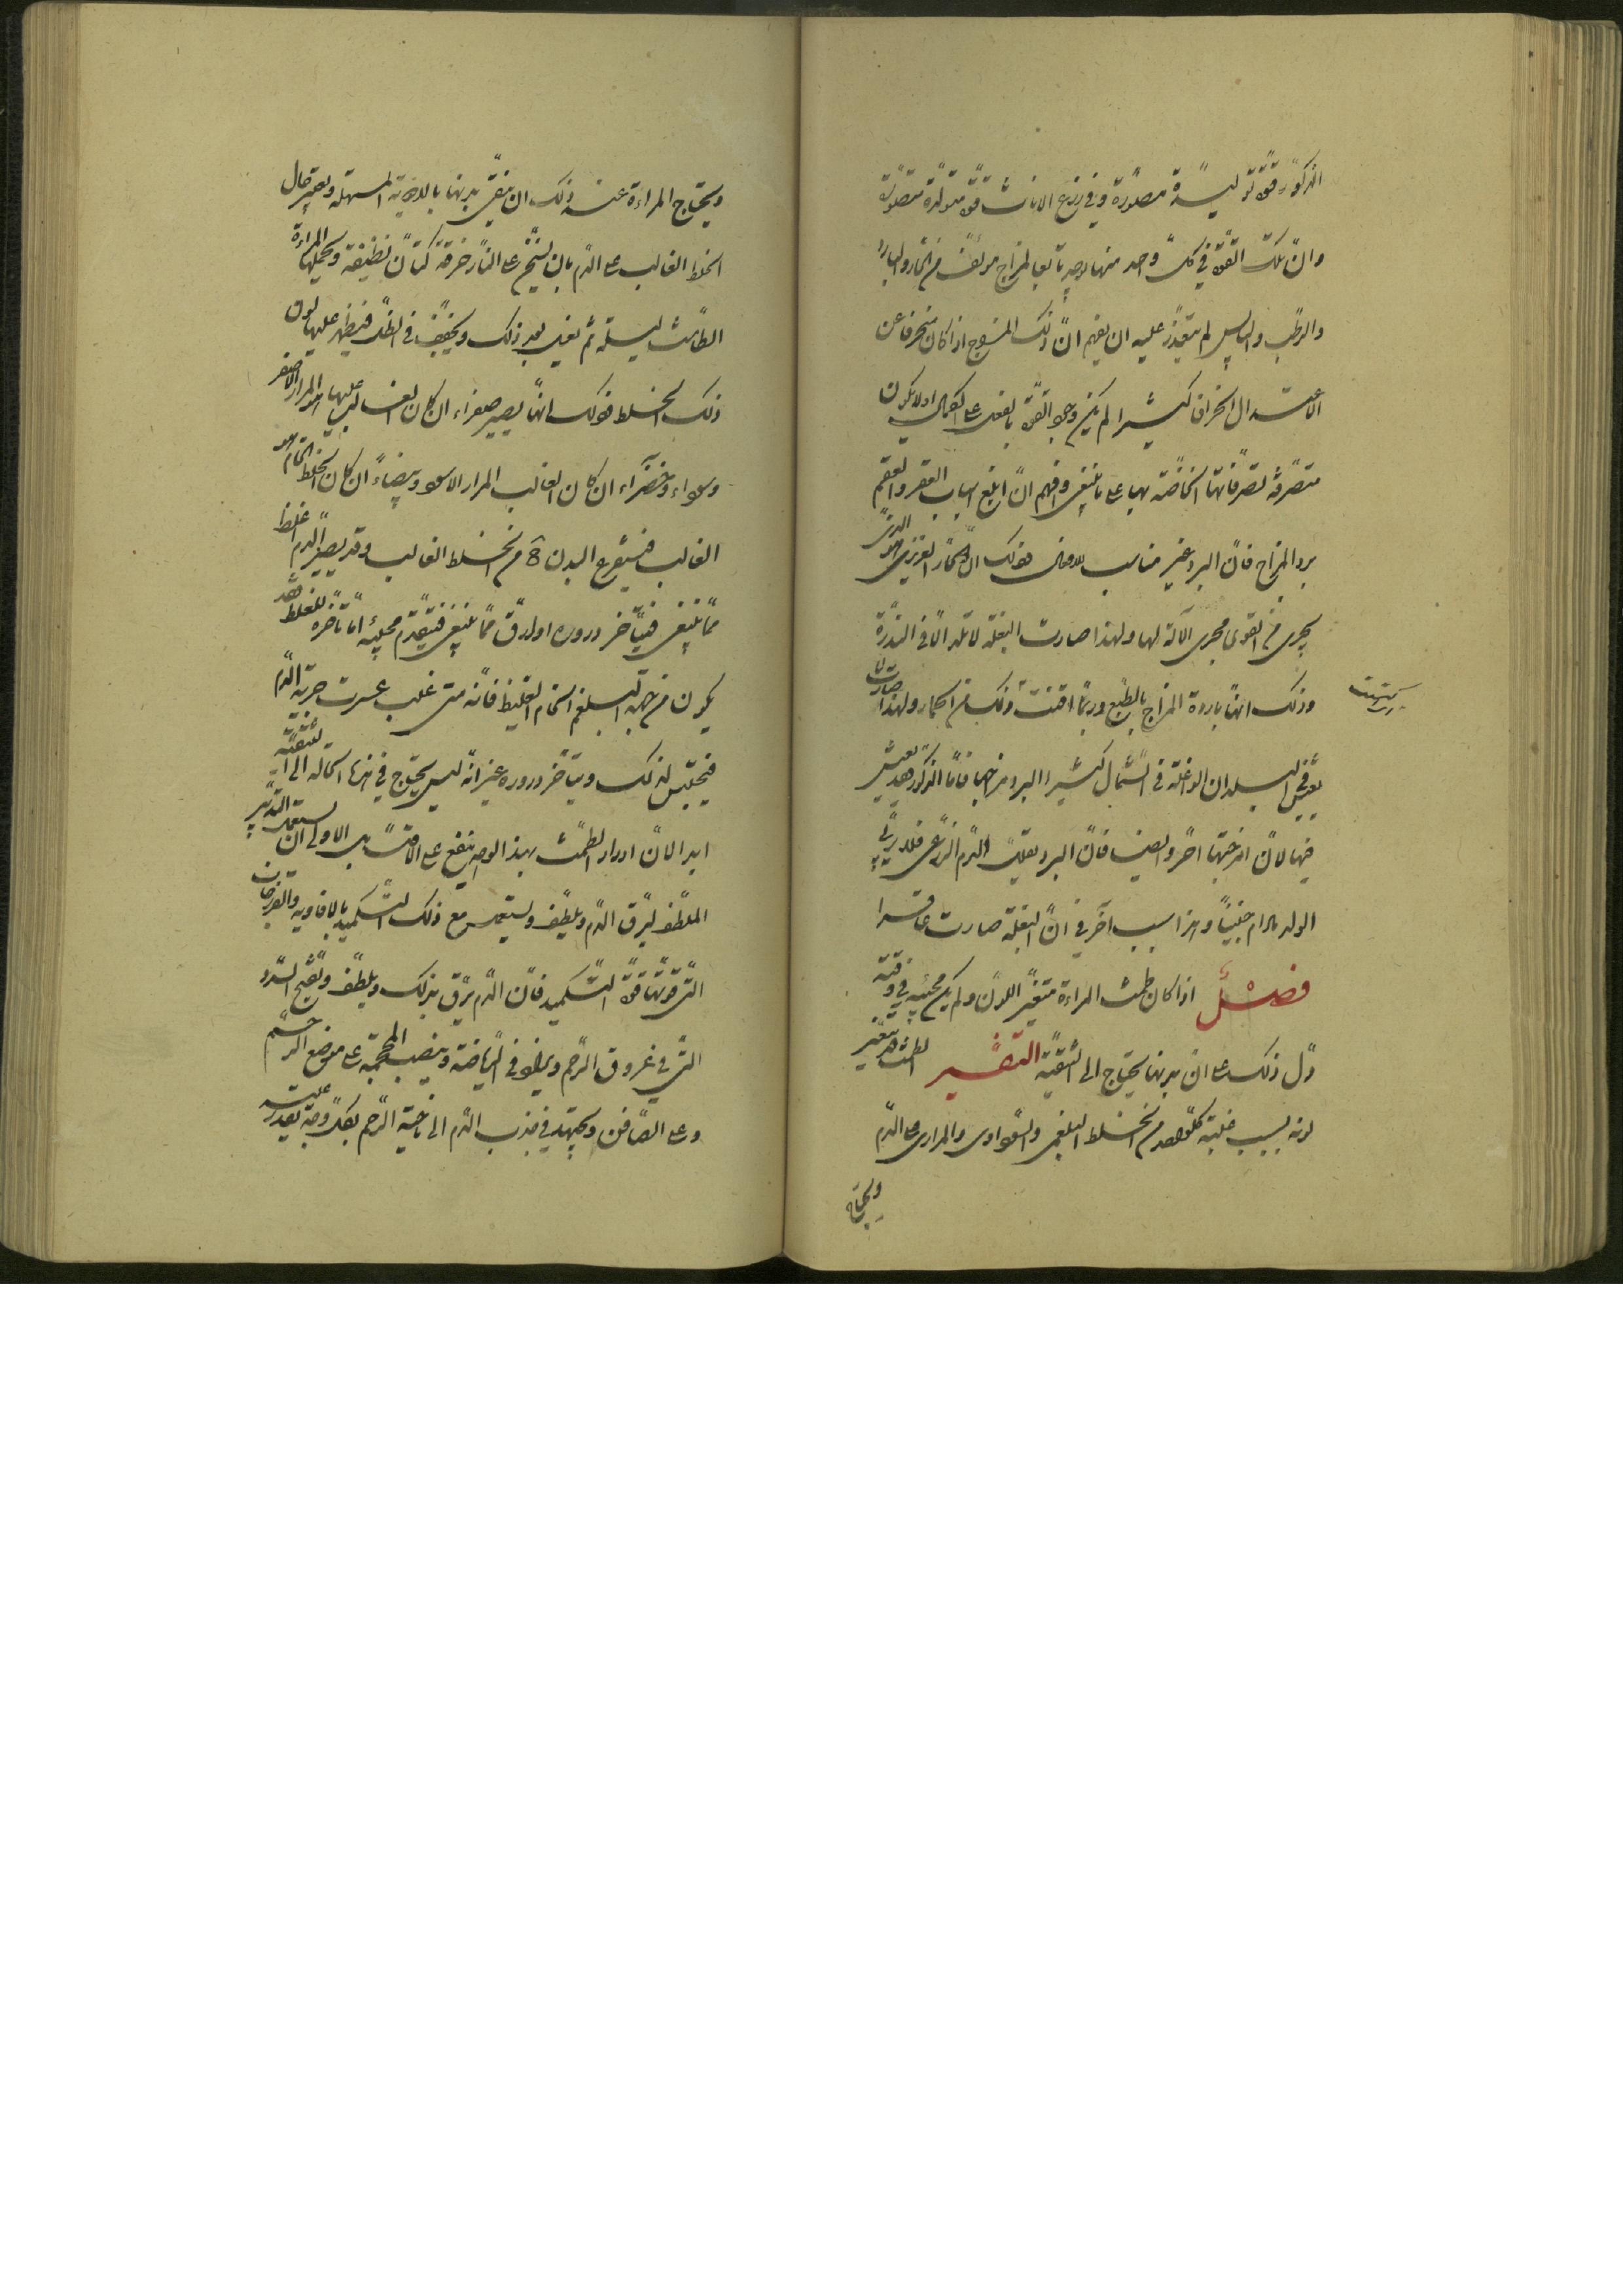 الذكور قوة توليدية مصورة وفي زرع الاناث قوة متولدة متصورة
وان تلك القوة في كل واحد منهما يوجد تابعا لمزاج مؤلف من الحار والبارد
والرطب واليابس لم يتعذر عليه ان يفهم ان ذلك المزاج اذا كان منحرفا عن
الاعتدال انحرافا كثيرا لم يكن وجود القوة بالفعل على الكمال او لا يكون
متصرفة تصرفاتها الخاصة بها على ما ينبغي وافهم ان ابلغ اسباب العقر والعقم
برد المزاج فان البرد غير مناسب للافعال فولك ان الحار الغريزي هو الذي
يجري من القوى مجرى الآلة لها ولهذا صارت البغلة لا تلد الا في الندرة
وذلك انها باردة المزاج بالطبع وربما اقتنت ذلك من الحمار ولهذا صارت
البلدان الواغلة في الشمال كثيرا البرد مزاجها فاما الذكور فقد تعيش
فيها لان امزجتها احر وايضا فان البرد يقلل الدم الذي فلا يربي
الولد ما دام جنينا وهذا سبب آخر في ان البغلة صارت عاقرا
فصل اذا كان طمث المراءة متغير اللون ولم يكن مجيئه في وقته
دل ذلك على ان بدنها يحتاج الى التنقية التفسير الطمث قد يتغير
لونه بسبب غلبة كل واحد من الخلط البلغمي والسوداوي والمراري على الدم
ويحتاج
ويحتاج المراءة عند ذلك ان ينقى بدنها بالادوية المسهلة ويعتبر حال
الخلط الغالب على الدم بان يسخن على النار خرقة كتان نظيفة وتحملها المراءة
الطامث ليلة ثم يغسل بعد ذلك ويجفف في الظل فيظهر عليها لون
ذلك الخلط فولك انها يصير صفراء ان كان الغالب عليها هو المرار الاصفر
وسوداء وخضراء ان كان الغالب المرار الاسود وبيضاء ان كان الخلط الخام هو
الغالب فيستفرغ البدن من الخلط الغالب وقد يصير الدم اغلظ
مما ينبغي فيتأخر دروره او ارق مما ينبغي فيتقدم مجيئه اما تأخره للغلظ فقد
يكون من جهة البلغم الخام الغليظ فانه متى غلب عسرت جرية الدم
فيحتبس لذلك ويتأخر دروره غير انه ليس يحتاج في هذه الحالة الى التنقية
ابدا لان ادرار الطمث بهذا الوجه ينفع على الاقل بل الاولى ان يستعمل التدبير
الملطف ليرق الدم ويلطف ويستعمل مع ذلك التكميد بالافاويه والفرزجات
التي قوتها قوة التكميد فان الدم يرق بذلك ويلطف ويفتح السدد
التي في عروق الرحم ويبالغ في الرياضة وينصب المحجمة على موضع الرحم
وعلى الصافن ويجتهد في جذب الدم الى ناحية الرحم بكل وجه يقدر عليه